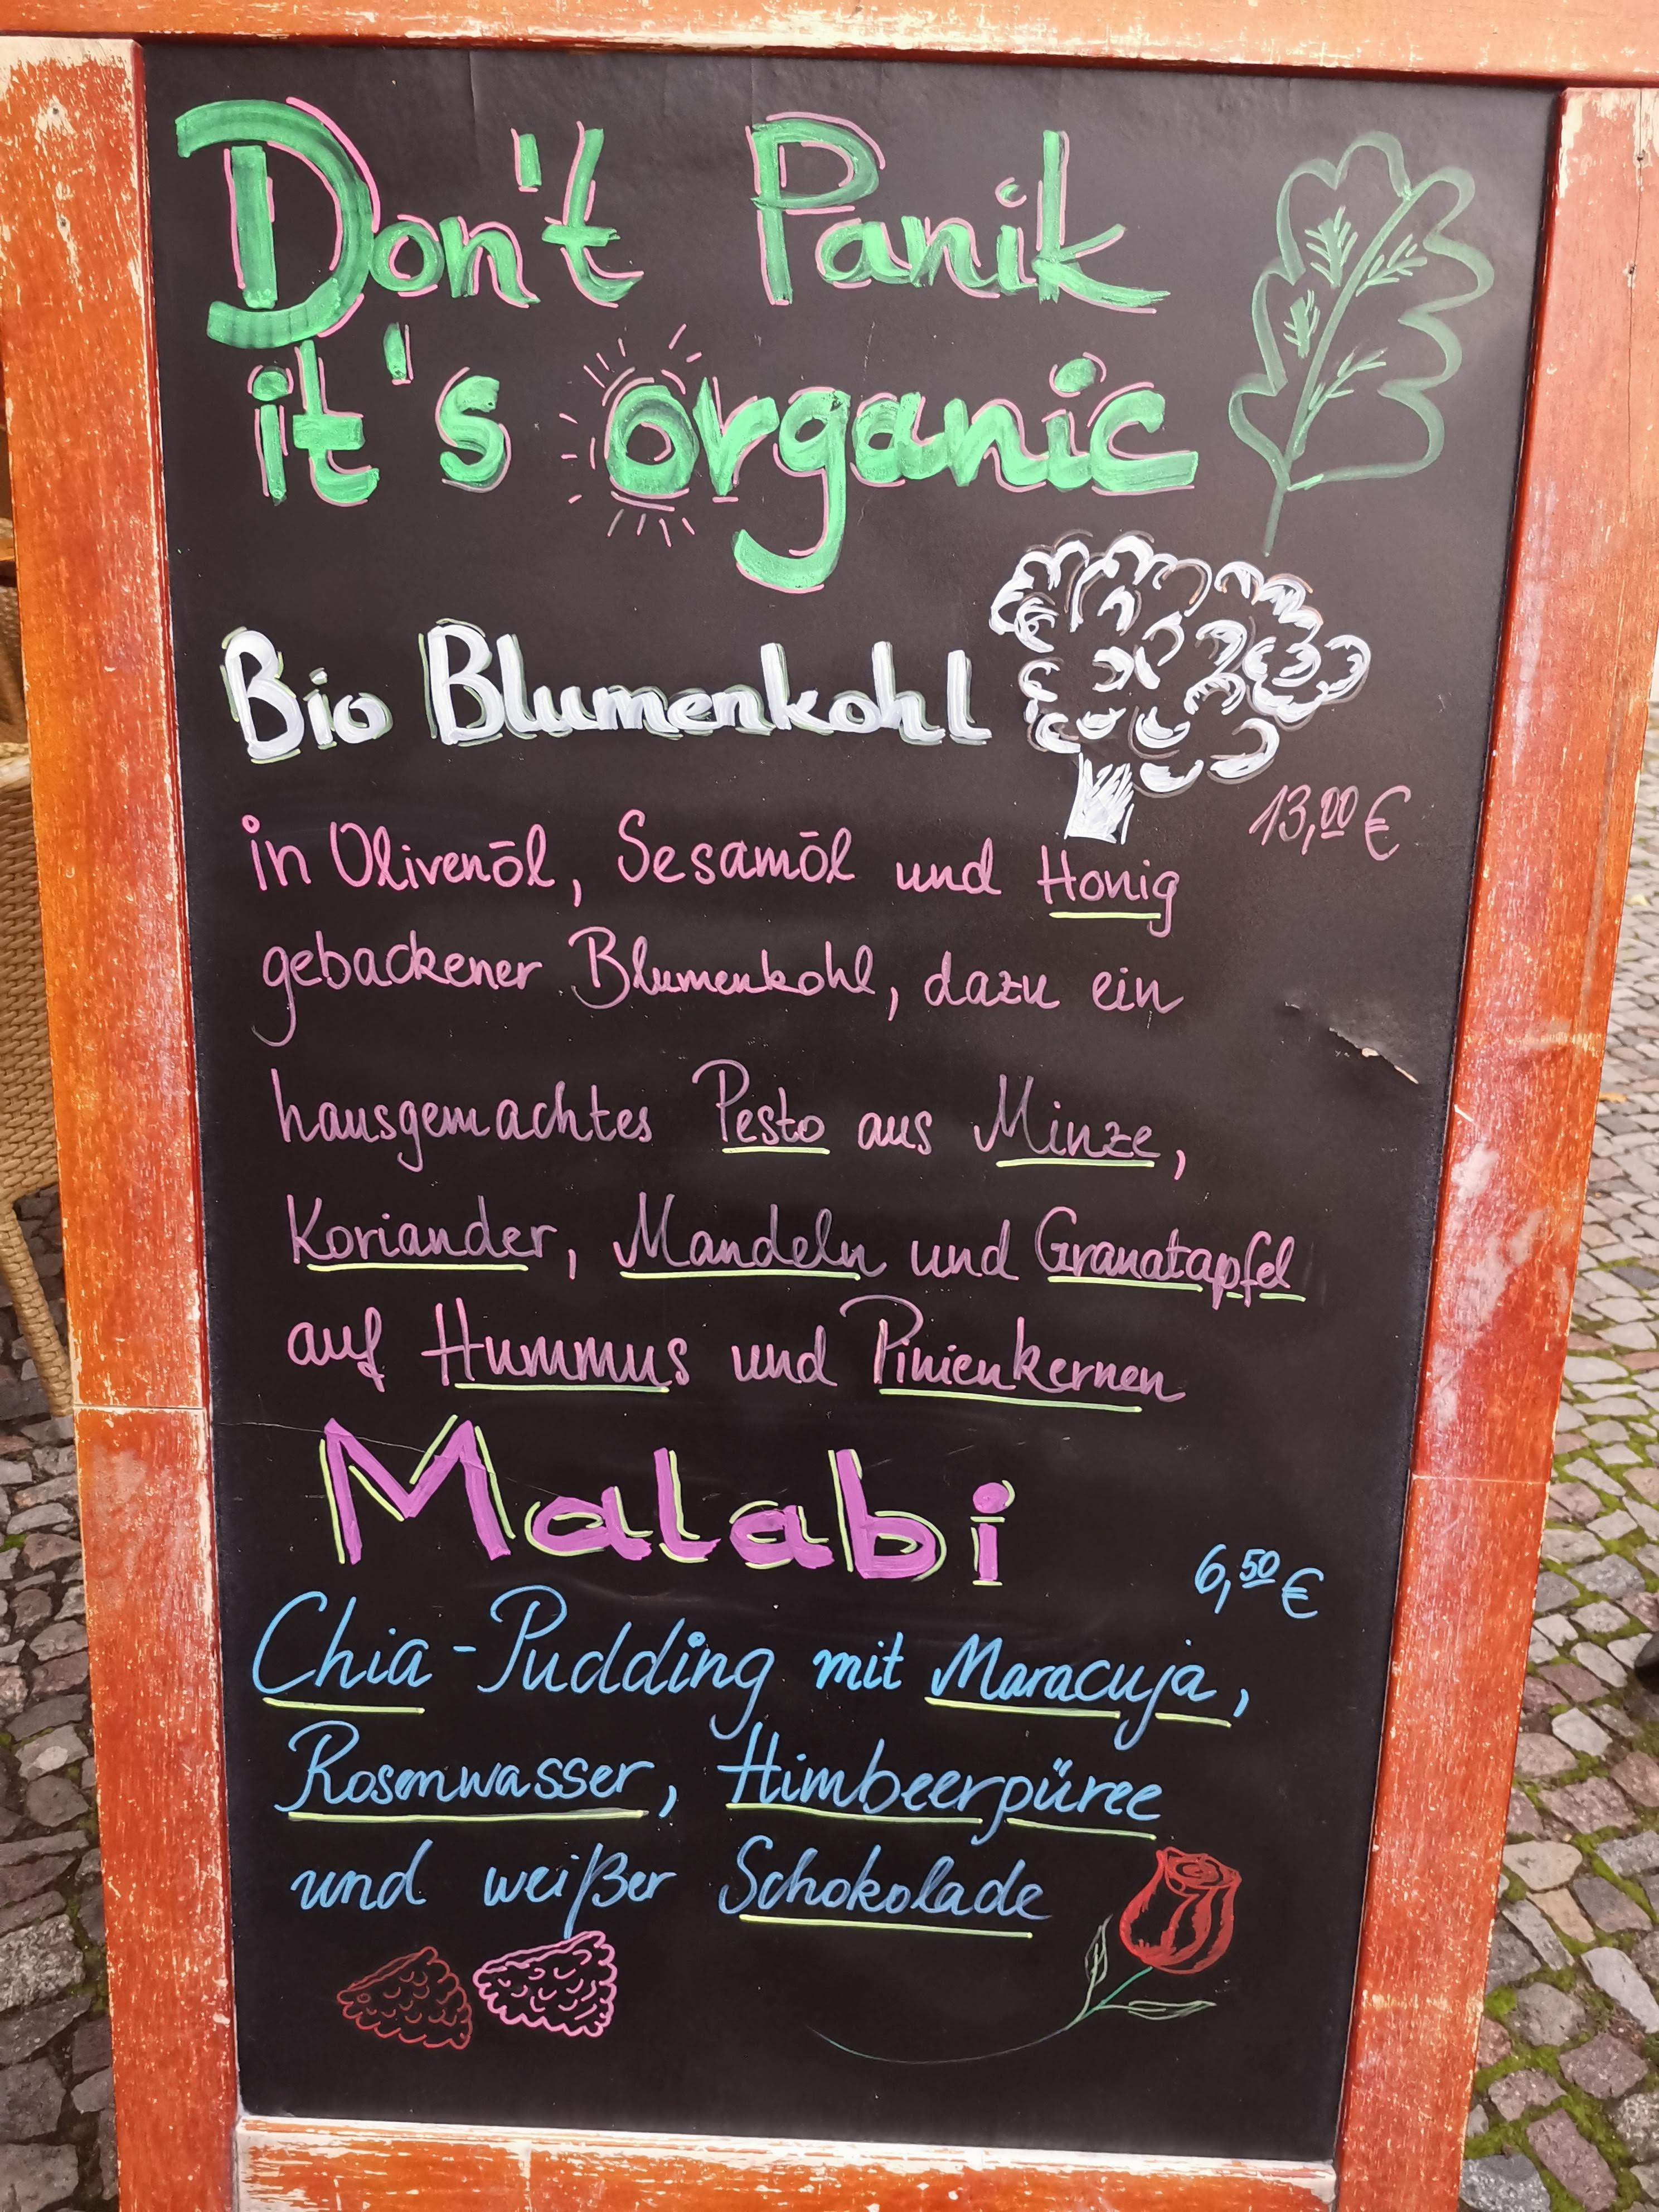 Don't Panik
it's organic
Bio Blumenkohl
13,00 €
in Olivenöl, Sesamöl und Honig
gebackener Blumenkohl, dazu ein
hausgemachtes Pesto aus Minze,
Koriander, Mandeln und Granatapfel
auf Hummus und Pinienkernen
Malabi
6,50 €
Chia-Pudding mit Maracuja,
Rosenwasser, Himbeerpüree
und weißer Schokolade